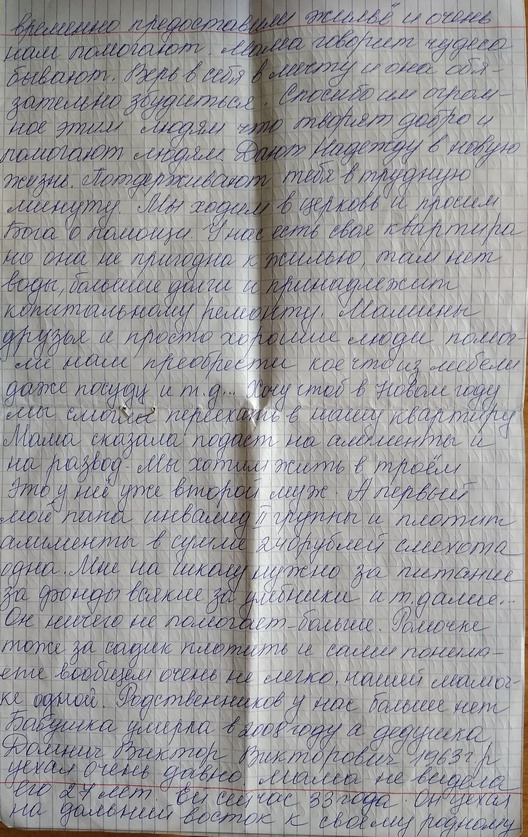 временно предоставили жильё и очень
нам помогают. Мама говорит чудеса
бывают. Верь в себя в мечту и она обя-
зательно збудиться. Спосибо им огром-
ное этим людям что творят добро и
помогают людям. Дают надежду в новую
жизнь. Потдерживают тебя в трудную
минуту. Мы ходим в церковь и просим
Бога о помощи. У нас есть своя квартира
но она не пригодна к жилью, там нет
воды, большие долги и принадлежит
копитальному ремонту. Мамины
друзья и просто хорошие люди помог-
ли нам преобрести кое что из мебели
даже посуду и т.д... Хочу чтоб в Новом году
мы смогли переехать в нашу квартиру
Мама сказала подаст на алименты и
на развод. Мы хотим жить в троём
Это у неё уже второй муж. А первый
мой папа инвалид II группы и плотит
алименты в сумме 240рублей смехота
одна. Мне на школу нужно за питание
за фонды всякие за учебники и т.далие...
Он ничего не помогает больше. Ромочке
тоже за садик плотить и сами понима-
ете вообщем очень не легко, нашей мамоч-
ке одной. Родственников у нас больше нет
Бабушка умерла в 2008 году а дедушка
Виктор Викторович 1963г/р
уехал очень давно мама не видела
его 27 лет. Ей сейчас 33года. Он уехал
на дальний восток к своему родному